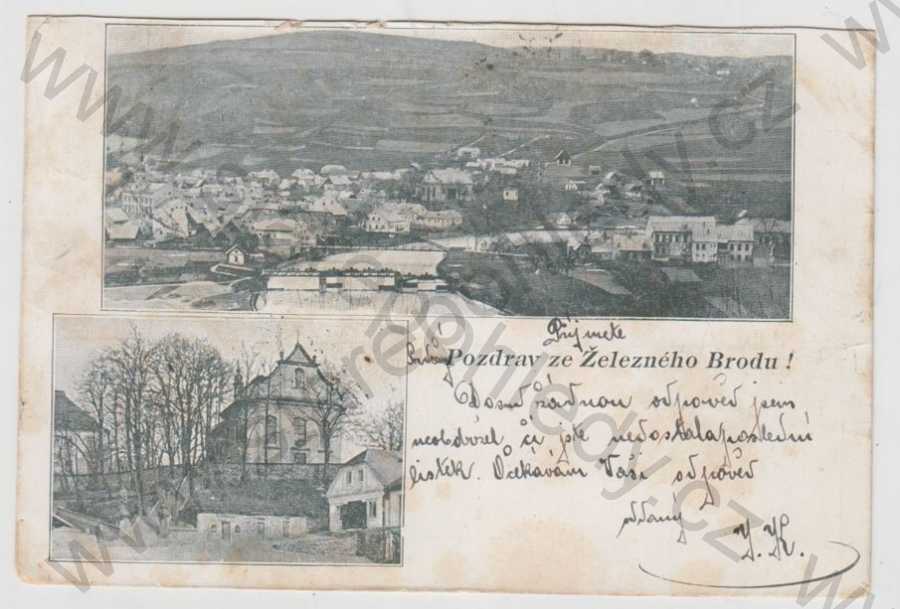 Přijmete
Pozdrav ze Železného Brodu !
Dosud žádnou odpověď jsem
neobdržel či jste nedostala poslední
lístek. Očekávám Vaši odpověď
oddaný
J. K.